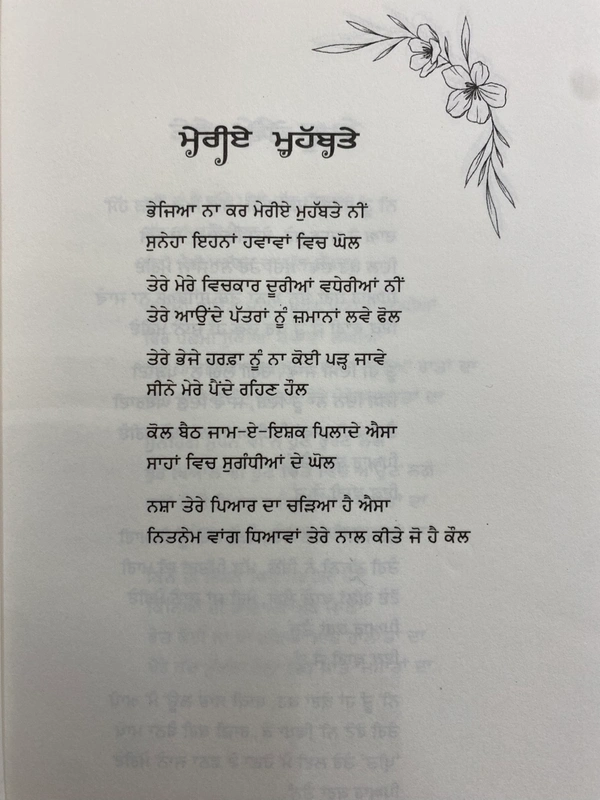 ਮੇਰੀਏ ਮੁਹੱਬਤੇ
ਭੇਜਿਆ ਨਾ ਕਰ ਮੇਰੀਏ ਮੁਹੱਬਤੇ ਨੀਂ
ਸੁਨੇਹਾ ਇਹਨਾਂ ਹਵਾਵਾਂ ਵਿਚ ਘੋਲ
ਤੇਰੇ ਮੇਰੇ ਵਿਚਕਾਰ ਦੂਰੀਆਂ ਵਧੇਰੀਆਂ ਨੀਂ
ਤੇਰੇ ਆਉਂਦੇ ਪੱਤਰਾਂ ਨੂੰ ਜ਼ਮਾਨਾਂ ਲਵੇ ਫੋਲ
ਤੇਰੇ ਭੇਜੇ ਹਰਫ਼ਾ ਨੂੰ ਨਾ ਕੋਈ ਪੜ੍ਹ ਜਾਵੇ
ਸੀਨੇ ਮੇਰੇ ਪੈਂਦੇ ਰਹਿਣ ਹੌਲ
ਕੋਲ ਬੈਠ ਜਾਮ-ਏ-ਇਸ਼ਕ ਪਿਲਾਦੇ ਐਸਾ
ਸਾਹਾਂ ਵਿਚ ਸੁਗੰਧੀਆਂ ਦੇ ਘੋਲ
ਨਸ਼ਾ ਤੇਰੇ ਪਿਆਰ ਦਾ ਚੜਿਆ ਹੈ ਐਸਾ
ਨਿਤਨੇਮ ਵਾਂਗ ਧਿਆਵਾਂ ਤੇਰੇ ਨਾਲ ਕੀਤੇ ਜੋ ਹੈ ਕੌਲ